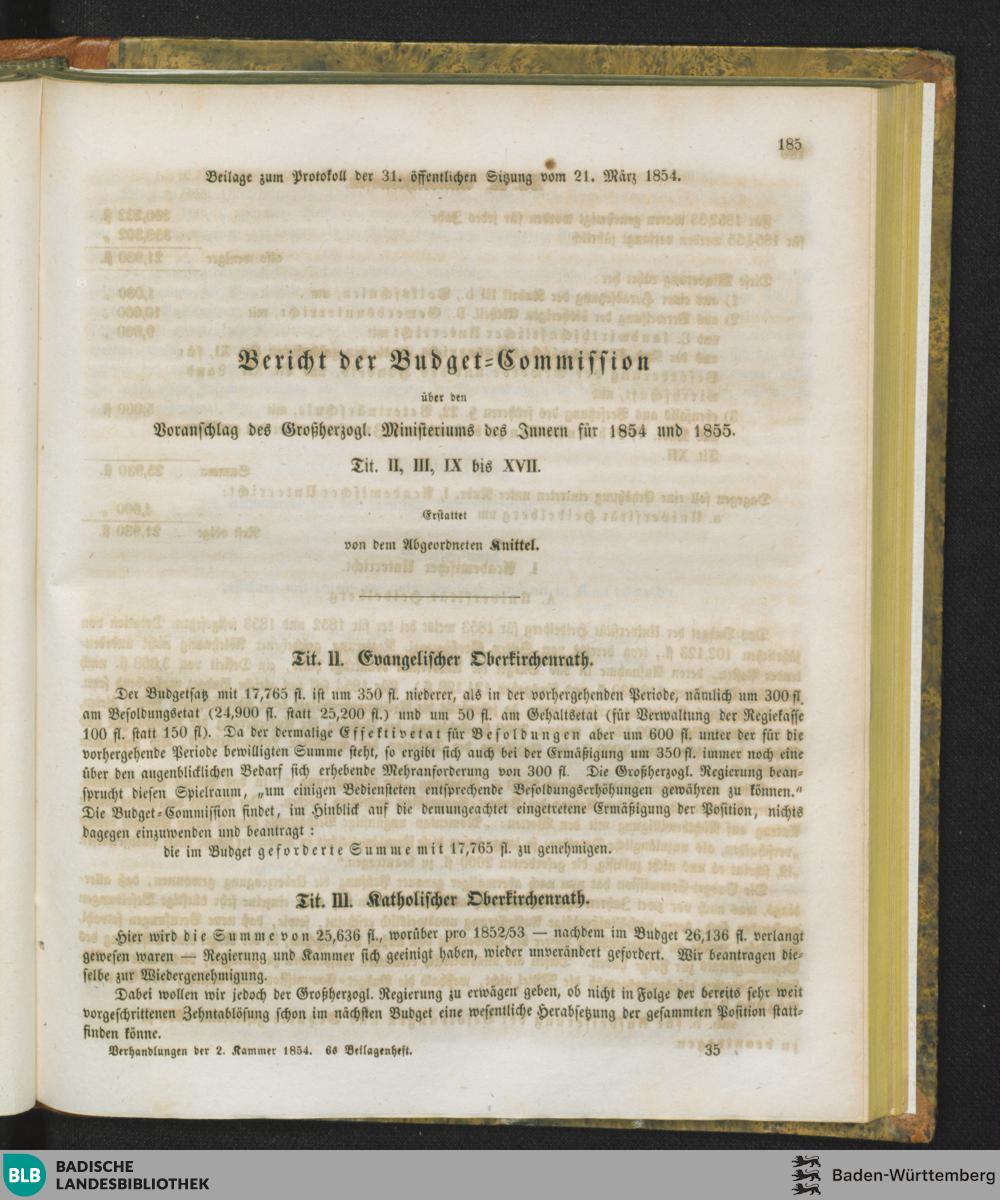 185
Beilage zum Protokoll der 31. öffentlichen Sitzung vom 21. März 1854.
Bericht der Budget-Commission
über den
Voranschlag des Großherzogl. Ministeriums des Innern für 1854 und 1855.
Tit. II, III, IX bis XVII.
Erstattet
von dem Abgeordneten Knittel.
Tit. II. Evangelischer Oberkirchenrath.
Der Budgetsatz mit 17,765 fl. ist um 350 fl. niederer, als in der vorhergehenden Periode, nämlich um 300 fl.
am Besoldungsetat (24,900 fl. statt 25,200 fl.) und um 50 fl. am Gehaltsetat (für Verwaltung der Regiekasse
100 fl. statt 150 fl). Da der dermalige Effektivetat für Besoldungen aber um 600 fl. unter der für die
vorhergehende Periode bewilligten Summe steht, so ergibt sich auch bei der Ermäßigung um 350 fl. immer noch eine
über den augenblicklichen Bedarf sich erhebende Mehranforderung von 300 fl. Die Großherzogl. Regierung bean-
sprucht diesen Spielraum, „um einigen Bediensteten entsprechende Besoldungserhöhungen gewähren zu können."
Die Budget-Commission findet, im Hinblick auf die demungeachtet eingetretene Ermäßigung der Position, nichts
dagegen einzuwenden und beantragt:
die im Budget geforderte Summe mit 17,765 fl. zu genehmigen.
Tit. III. Katholischer Oberkirchenrath.
Hier wird die Summe von 25,636 fl., worüber pro 1852/53 — nachdem im Budget 26,136 fl. verlangt
gewesen waren — Regierung und Kammer sich geeinigt haben, wieder unverändert gefordert. Wir beantragen die-
selbe zur Wiedergenehmigung.
Dabei wollen wir jedoch der Großherzogl. Regierung zu erwägen geben, ob nicht in Folge der bereits sehr weit
vorgeschrittenen Zehntablösung schon im nächsten Budget eine wesentliche Herabsetzung der gesammten Position statt-
finden könne.
Verhandlungen der 2. Kammer 1854. 6s Beilagenheft.
35
BLB
BADISCHE
LANDESBIBLIOTHEK
Baden-Württemberg